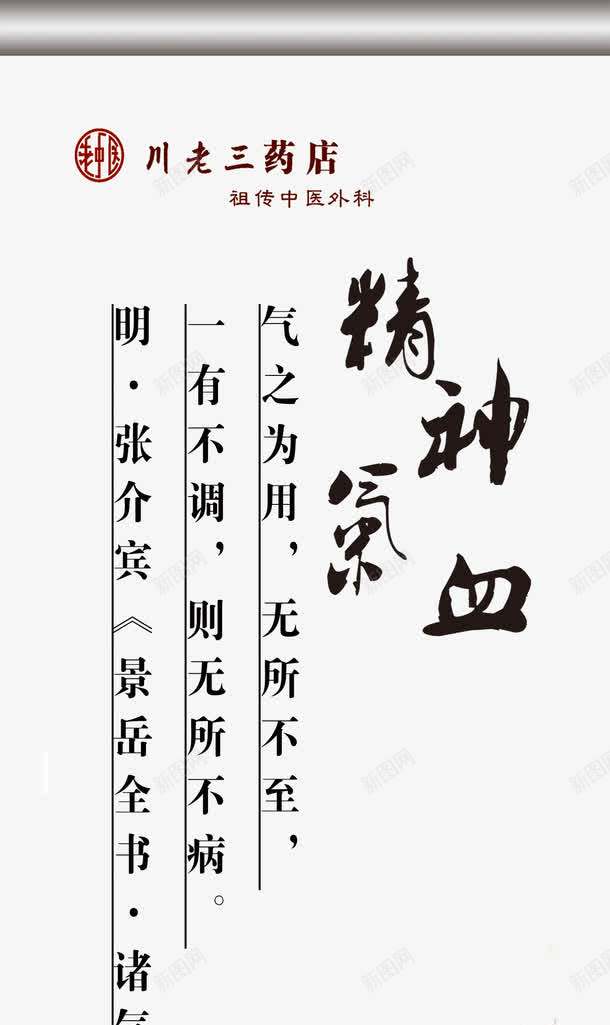 老中医
川老三药店
祖传中医外科
精神
氣血
气之为用，无所不至，
一有不调，则无所不病。
明·张介宾《景岳全书·诸气
新图网